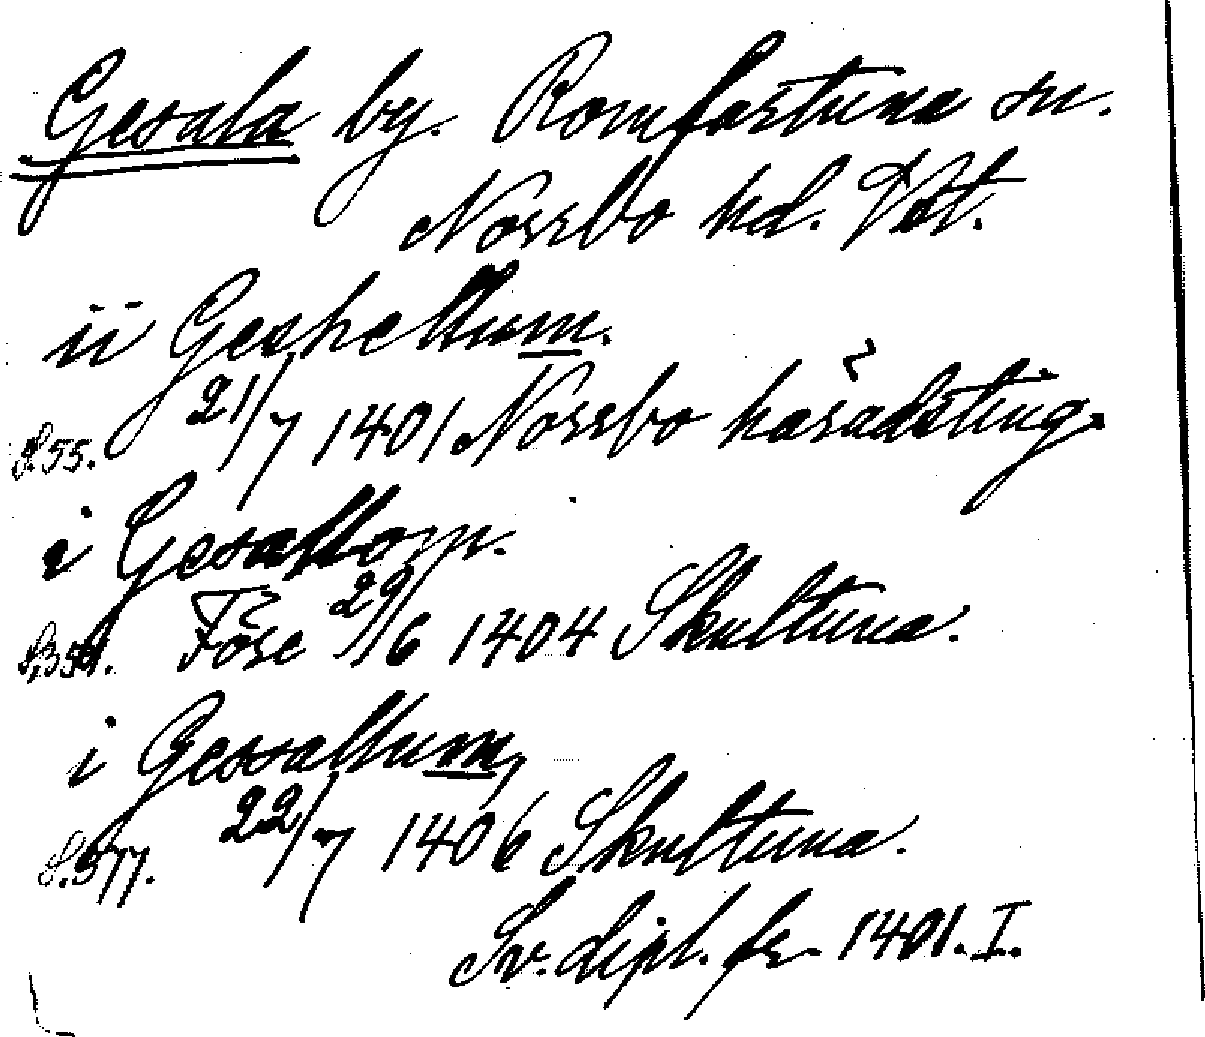 Gesala by. Romfartuna sn.
Norrbo hd. Vstm.
ii Geshellum.
S. 55. 21/7 1401 Norrbo häradsting.
i Gesallom.
Före 29/6 1404 Skultuna.
i Gessallum,
S. 577. 22/7 1406 Skultuna.
Sv. dipl. fr. 1401. I.